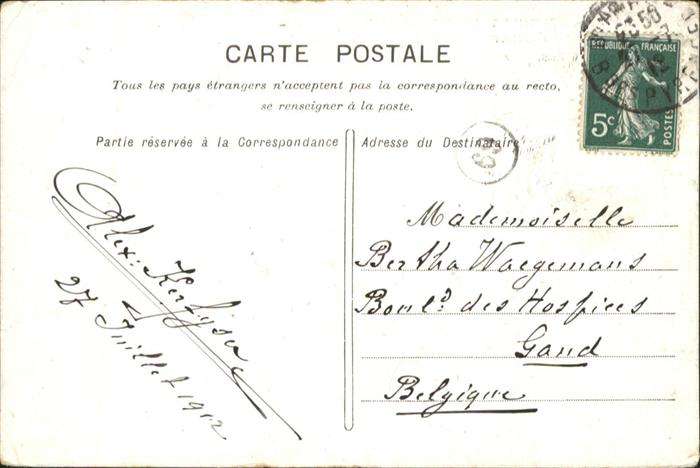 CARTE POSTALE
Tous les pays étrangers n'acceptent pas la correspondance au recto,
se renseigner à la poste.
Partie réservée à la Correspondance
Adresse du Destinataire
REPUBLIQUE FRANÇAISE
5c
POSTES
Alex.
27 Juillet 1912
Mademoiselle
Bertha Waegemans
Boul.d des Hospices
Gand
Belgique